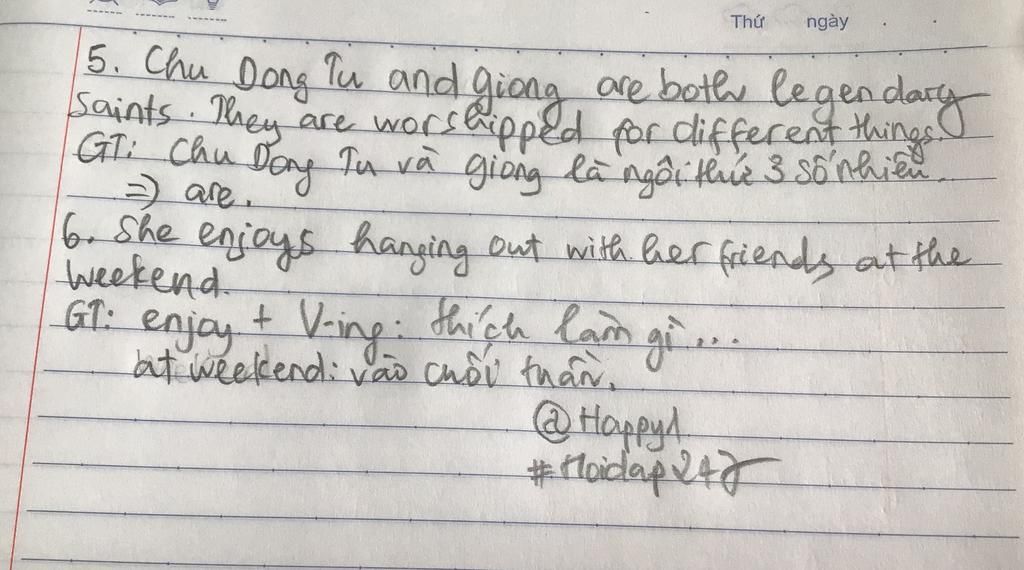 Thứ ngày
5. Chu Dong Tu and Giong are both legendary
saints. They are worshipped for different things.
GT: Chu Dong Tu và giong là ngôi thứ 3 số nhiều.
=> are.
6. She enjoys hanging out with her friends at the
weekend.
GT: enjoy + V-ing: thích làm gì...
at weekend: vào cuối tuần.
@Happy1
#Hoidap247